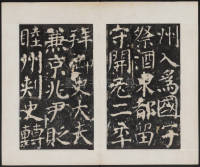 州入爲國子
祭酒東都留
守開元二年
拜御史大夫
兼京兆尹貶
睦州刺史轉